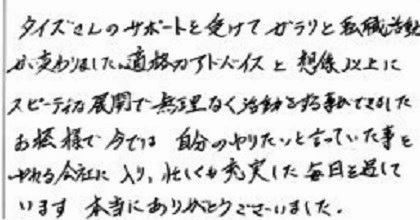 タイズさんのサポートを受けてガラリと転職活動
が変わりました。適格なアドバイスと想像以上に
スピーディな展開で無理なく活動をする事ができました
お蔭様で今では自分のやりたいと言っていた事を
やれる会社に入り、忙しくも充実した毎日を過して
います 本当にありがとうございました。